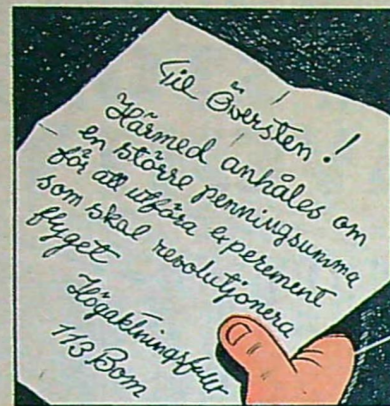 Til Översten!
Härmed anhåles om
en större penningsumma
för att utföra experement
som skal revolutjonera
flyget
Högaktningsfullt
113 Bom